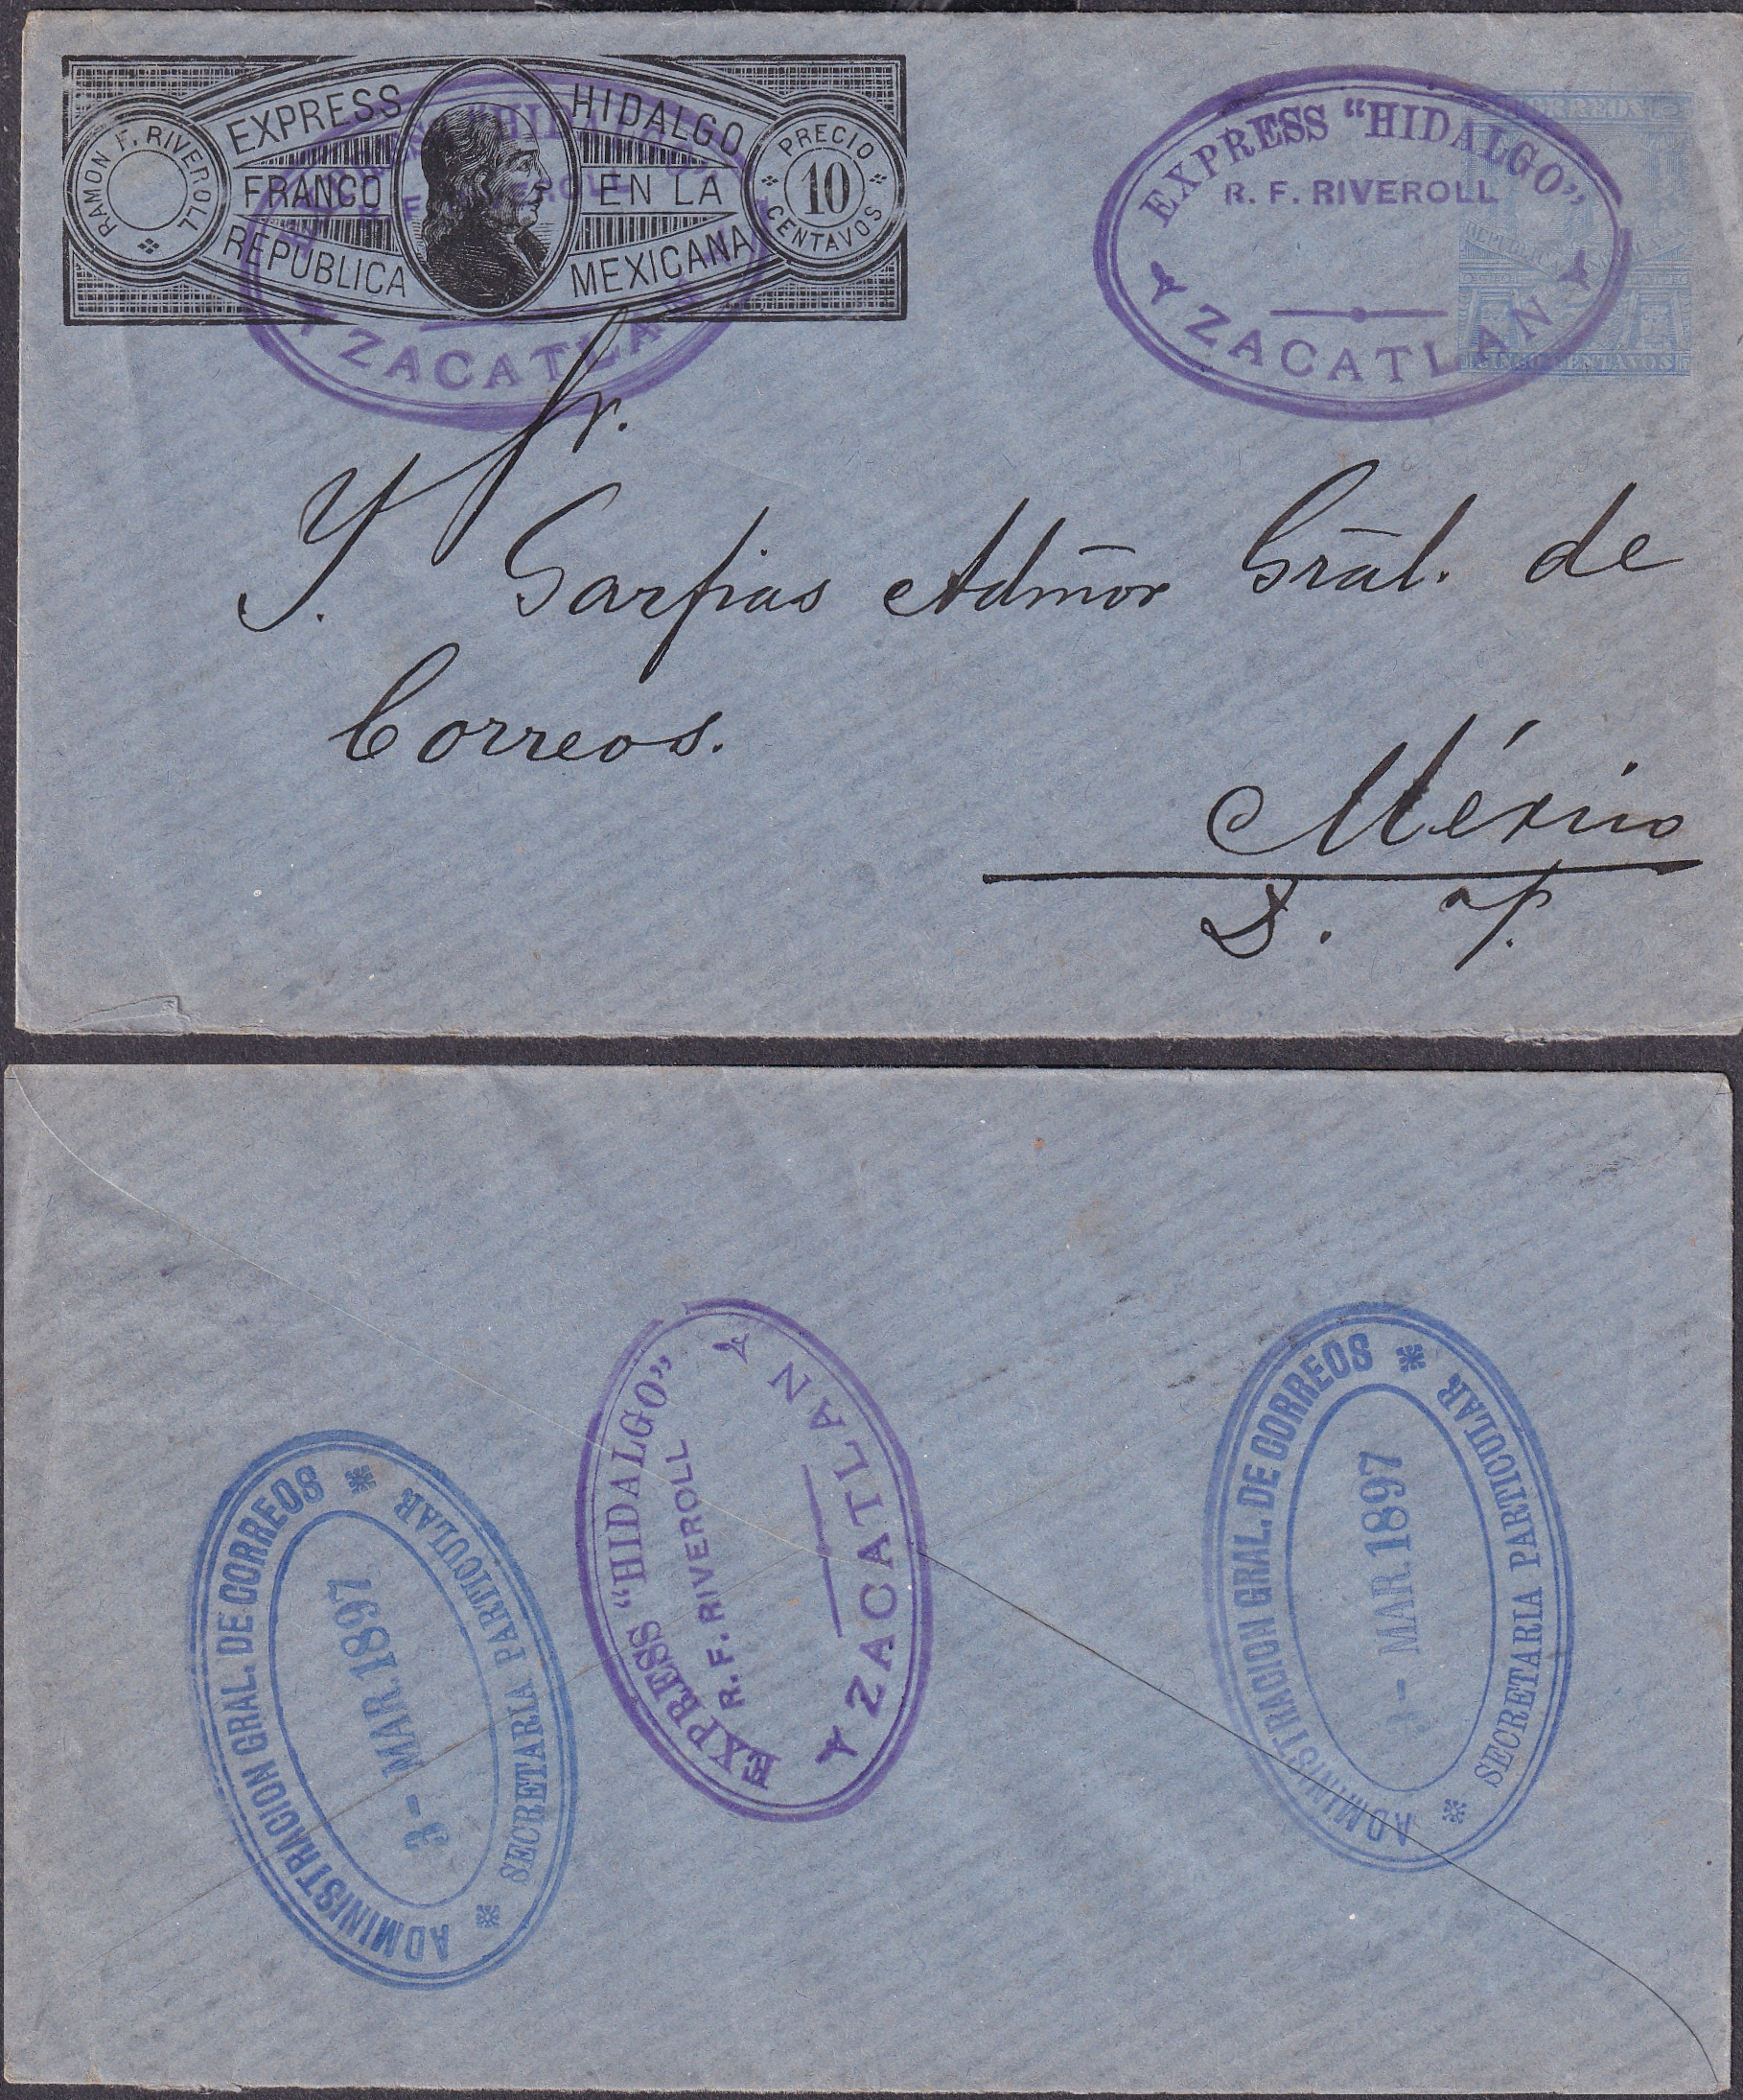 RAMON F. RIVEROLL
EXPRESS HIDALGO
FRANCO EN LA
REPUBLICA MEXICANA
PRECIO
10
CENTAVOS
EXPRESS "HIDALGO"
R. F. RIVEROLL
ZACATLAN
EXPRESS "HIDALGO"
R. F. RIVEROLL
ZACATLAN
CORREOS
REPUBLICA MEXICANA
CINCO CENTAVOS
Sr.
Y. Garfias Admōr Grāl. de
Correos.
México
D. F.
ADMINISTRACION GRAL. DE CORREOS
3 - MAR. 1897
SECRETARIA PARTICULAR
EXPRESS "HIDALGO"
R. F. RIVEROLL
ZACATLAN
ADMINISTRACION GRAL. DE CORREOS
3 - MAR. 1897
SECRETARIA PARTICULAR